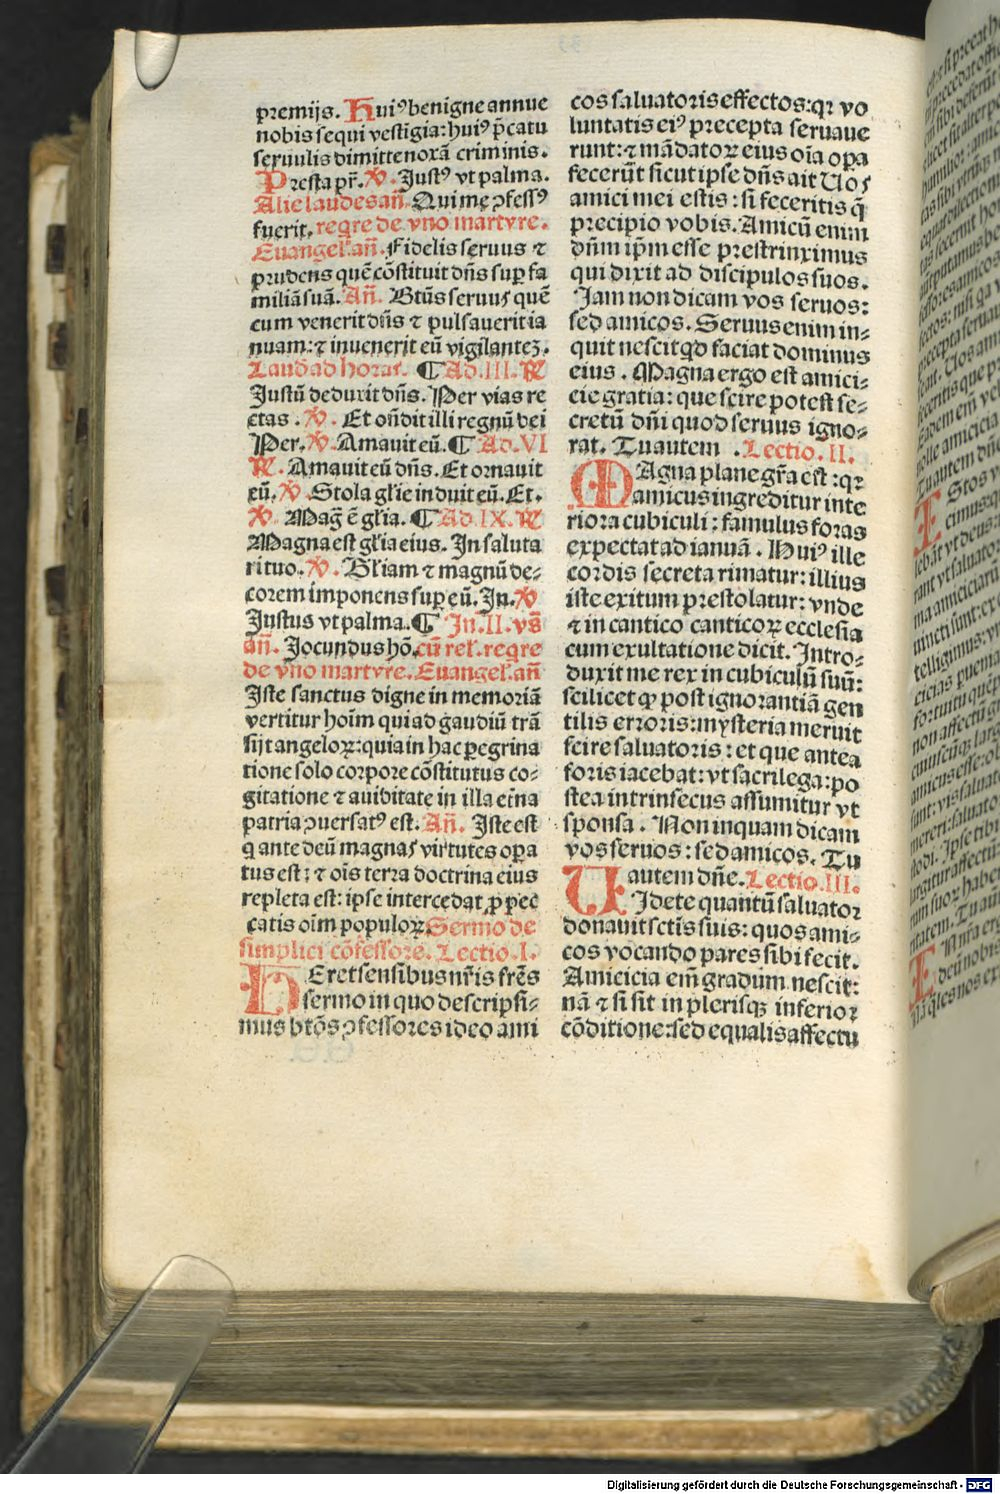 premijs. Huiꝰ benigne annue
nobis sequi vestigia: huiꝰ p̄catu
seruulis dimitte noxā criminis.
Presta pr̄. ℣. Justꝰ vt palma.
Alie laudes an̄. Qui me ꝯfessꝰ
fuerit. reqre de vno martyre.
Euangel̄. an̄. Fidelis seruus ⁊
prudens quē cōstituit dn̄s sup fa
miliā suā. An̄. Btūs seruus quē
cum venerit dn̄s ⁊ pulsauerit ia
nuam: ⁊ inuenerit eū vigilanteꝫ.
Laud̄ ad horas. ¶ Ad. III. ℟
Justū deduxit dn̄s. Per vias re
ctas. ℣. Et on̄dit illi regnū dei
Per. ℣. Amauit eū. ¶ Ad. VI
℟. Amauit eū dn̄s. Et ornauit
eū. ℣. Stola gl̄ie induit eū. Et.
℣. Maḡ ē gl̄ia. ¶ Ad. IX. ℟
Magna est gl̄ia eius. In saluta
ri tuo. ℣. Gl̄iam ⁊ magnū de⸗
corem impones sup eū. In. ℣
Justus vt palma. ¶ In. II. vs̄
an̄. Jocundus hō. cū rel̄. reqre
de vno martyre. Euangel̄. an̄
Iste sanctus digne in memoriā
vertitur hoīm qui ad gaudiū trā
sijt angeloꝝ: quia in hac peregrina
tione solo corpore cōstitutus co⸗
gitatione ⁊ auiditate in illa et̄na
patria ꝯuersatꝰ est. An̄. Iste est
q̄ ante deū magnas virtutes opa
tus est: ⁊ oīs terra doctrina eius
repleta est: ipse intercedat ꝓ pec
catis oīm populoꝝ. Sermo de
simplici cōfessore. Lectio. I.
HEret sensibus nr̄is fr̄es
sermo in quo descripsi⸗
mus btōs ꝯfessores ideo ami
cos saluatoris effectos: qꝛ vo
luntatis eiꝰ precepta seruaue
runt: ⁊ mādatoꝝ eius oīa opa
fecerūt sicut ipse dn̄s ait Uos
amici mei estis: si feceritis q̄
precipio vobis. Amicū enim
dn̄m ip̄m esse prestrinximus
qui dixit ad discipulos suos.
Jam non dicam vos seruos:
sed amicos. Seruus enim in⸗
quit nescit qd faciat dominus
eius. Magna ergo est amici⸗
cie gratia: que scire potest se⸗
cretū dn̄i quod seruus igno⸗
rat. Tu autem. Lectio. II.
MAgna plane gr̄a est: qꝛ
amicus ingreditur inte
riora cubiculi: famulus foras
expectat ad ianuā. Huiꝰ ille
cordis secreta rimatur: illius
iste exitum prestolatur: vnde
⁊ in cantico canticoꝝ ecclesia
cum exultatione dicit. Intro⸗
duxit me rex in cubiculū suū:
scilicet ꝙ post ignorantiā gen
tilis erroris: mysteria meruit
scire saluatoris: et que antea
foris iacebat: vt sacrilega: po
stea intrinsecus assumitur vt
sponsa. Non inquam dicam
vos seruos: sed amicos. Tu
autem dn̄e. Lectio. III.
UIdete quantū saluator
donauit sctis suis: quos ami⸗
cos vocando pares sibi fecit.
Amicicia em̄ gradum nescit:
nā ⁊ si sit in plerisqꝫ inferior
cōditione: sed equalis affectu
Digitalisierung gefördert durch die Deutsche Forschungsgemeinschaft - DFG